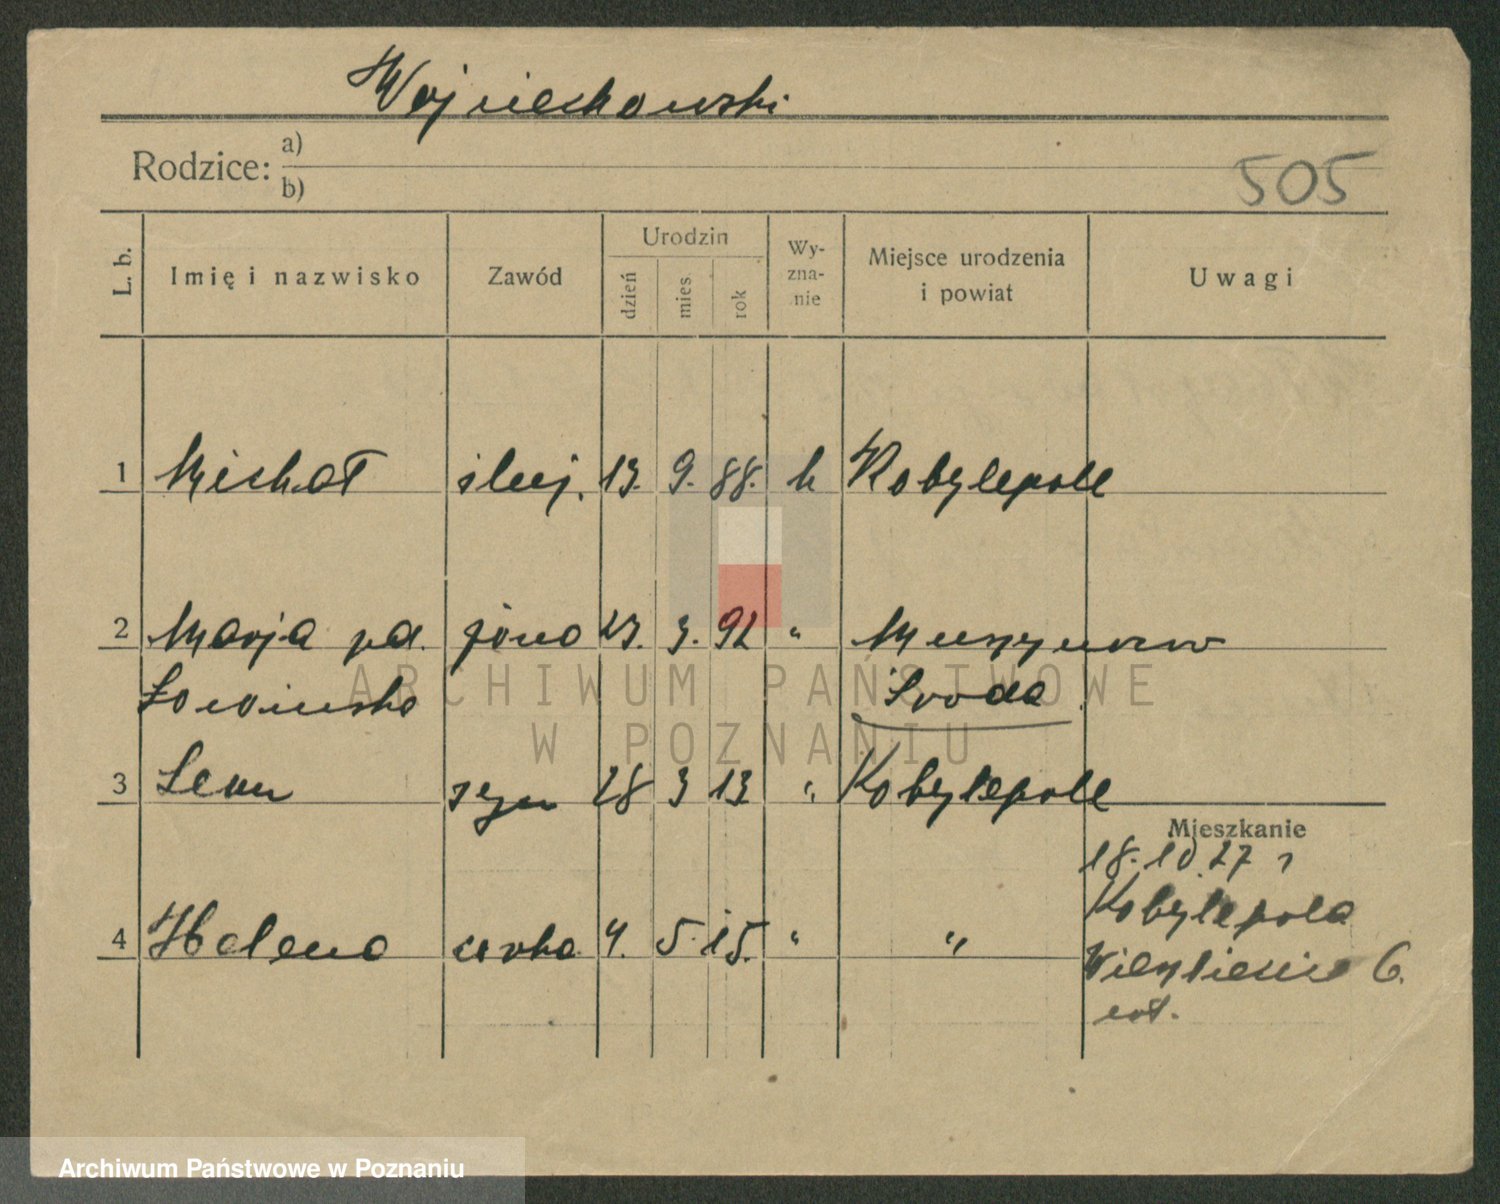 Wojciechowski
Rodzice: a)
b)
505
L. b. Imię i nazwisko Zawód Urodzin dzień mies. rok Wy-zna-nie Miejsce urodzenia i powiat Uwagi
1 Michał 13. 9. 88. k Kobylepole
2 Marja żona 23. 3. 92 " 
Środa
3 syn 28 3 13 " Kobylepole
Mieszkanie
18.10.27 r
4 Helena córka 4. 5. 15. " "
Kobylepole
6.
ARCHIWUM PAŃSTWOWE
W POZNANIU
Archiwum Państwowe w Poznaniu